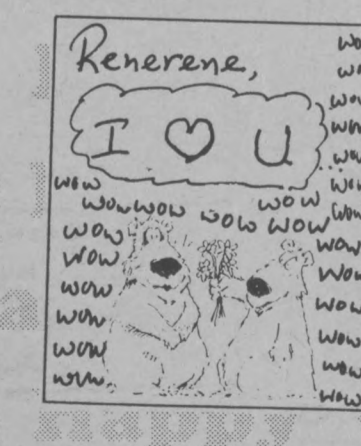 Renerene,
I ♡ U
wow
wow
wow
wow
wow
wow
wow wow wow wow wow
wow wow
wow
wow
wow
wow
wow
wow
wow
wow
wow
wow
wow
happy